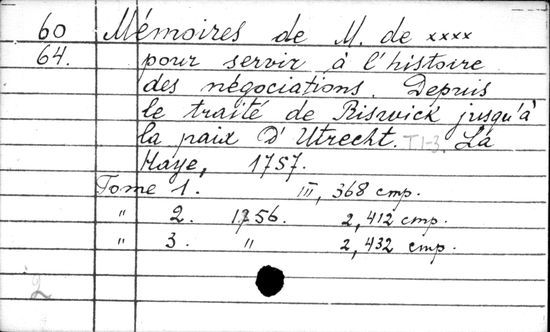 60 Mémoires de M. de xxxx
64. pour servir à l'histoire
des négociations. Depuis
le traité de Riswick jusqu'à
la paix d'Utrecht. T 1-3. La
Haye, 1757.
Tome 1. III, 368 стр.
" 2. 1756. 2, 412 стр.
" 3. " 2, 432 стр.
2